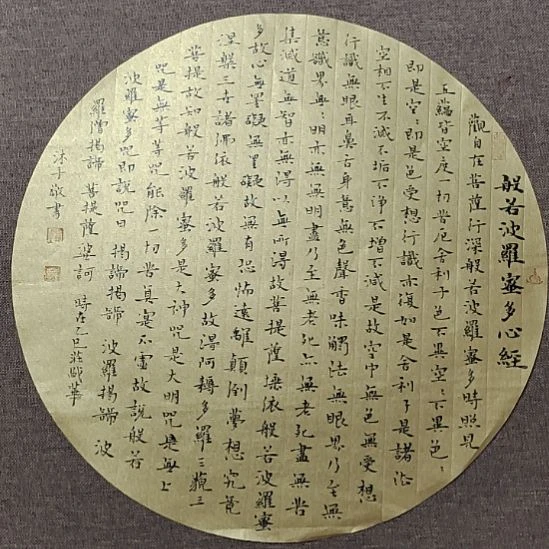 般若波羅蜜多心經
觀自在菩薩行深般若波羅蜜多時照見
五蘊皆空度一切苦厄舍利子色不異空〻不異色〻
即是空〻即是色受想行識亦復如是舍利子是諸法
空相不生不滅不垢不淨不增不減是故空中無色無受想
行識無眼耳鼻舌身意無色聲香味觸法無眼界乃至無
意識界無〻明亦無無明盡乃至無老死亦無老死盡無苦
集滅道無智亦無得以無所得故菩提薩埵依般若波羅蜜
多故心無罣礙無罣礙故無有恐怖遠離顛倒夢想究竟
涅槃三世諸佛依般若波羅蜜多故得阿耨多羅三藐三
菩提故知般若波羅蜜多是大神咒是大明咒是無上
咒是無等等咒能除一切苦真實不虛故說般若
波羅蜜多咒即說咒曰 揭諦揭諦 波羅揭諦 波
羅僧揭諦 菩提薩婆訶 時在乙巳莊華
沐手敬書